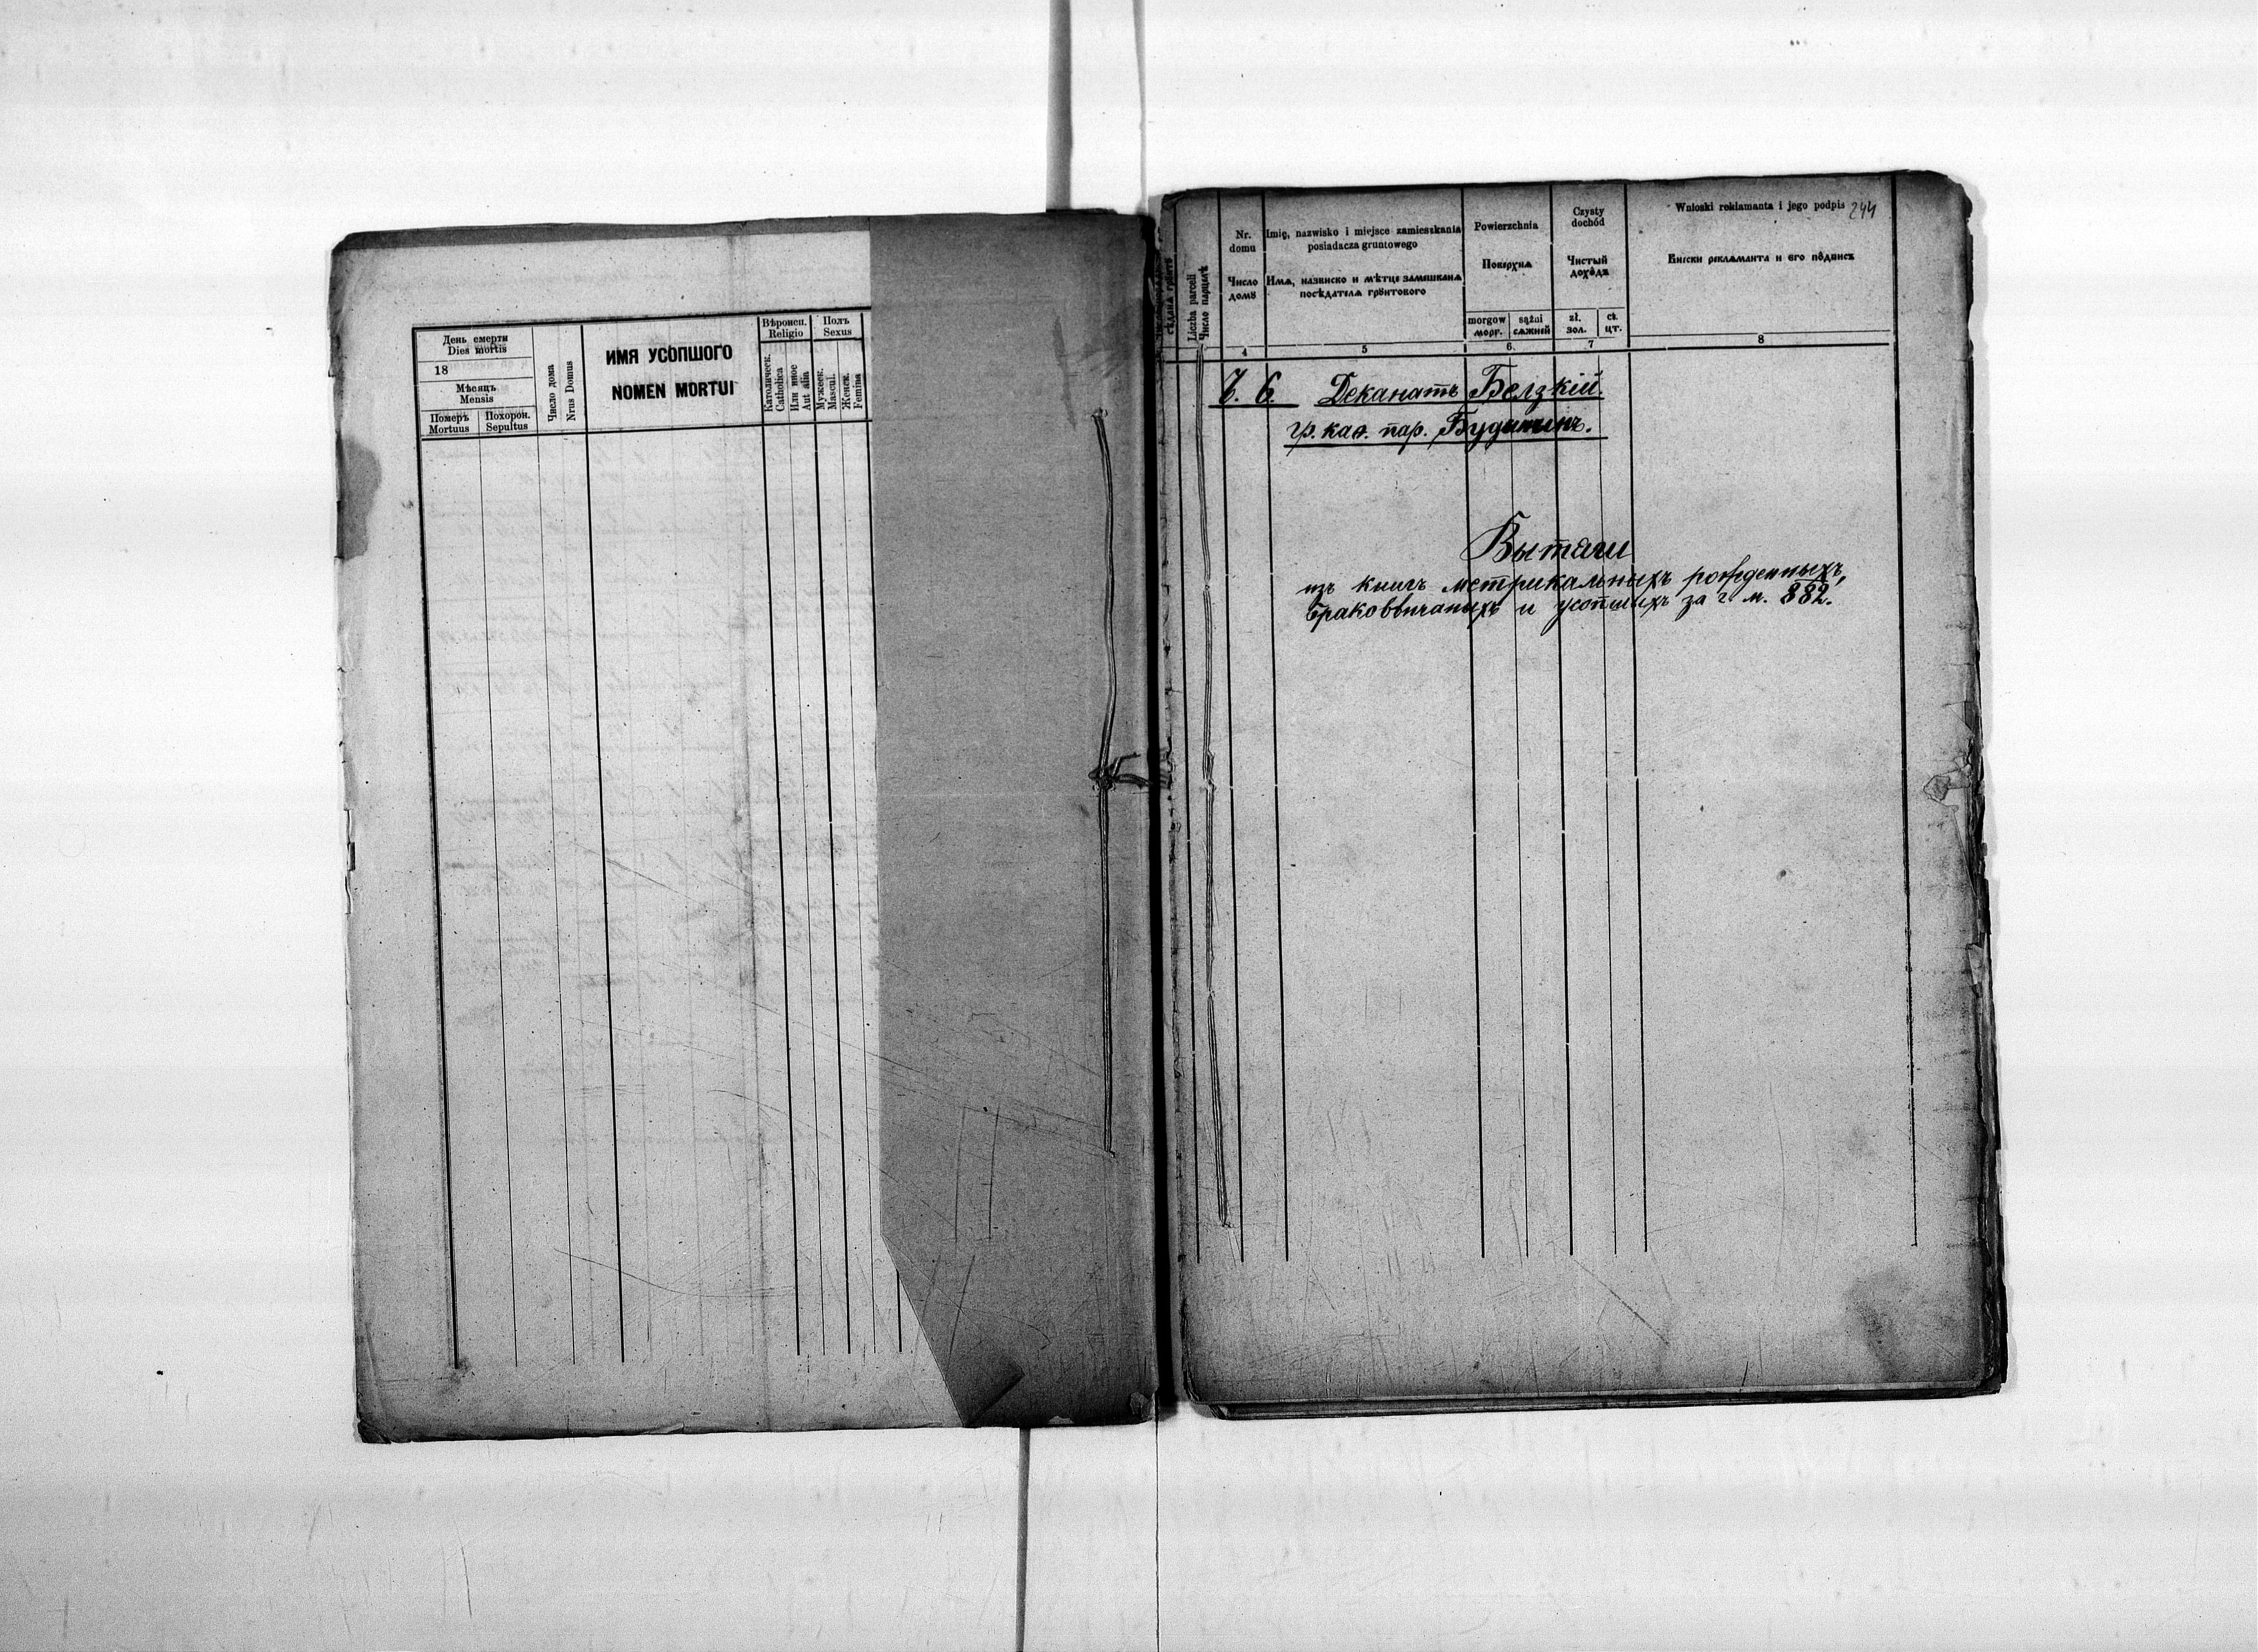 День смерти
Dies mortis
18
Мѣсяць
Mensis
Померъ
Mortuus
Похорон.
Sepultus
Число дома
Nrus Domus
ИМЯ УСОПШОГО
NOMEN MORTUI
Вѣроисп.
Religio
Католическ.
Catholica
Или иное
Aut alia
Полъ
Sexus
Мужеск.
Mascul.
Женск.
Femina
Liczba parceli
Число парцелѣ
Nr.
domu
Число
домꙋ
4
Imię, nazwisko i miejsce zamieszkania
posiadacza gruntowego
Имѧ, назвиско и мѣстце замешканѧ
посѣдателѧ грꙋнтового
5
Powierzchnia
Поверхнѧ
morgow
морг.
sążni
сѧжней
6
Czysty
dochód
Чистый
доходъ
zł.
зол.
ct.
цт.
7
Wnioski reklamanta i jego podpis
Внески реклѧманта и его подписъ
8
244
6. Деканатъ Белзкій.
гр. каѳ. пар. Будининъ.
Вытяги
изъ книгъ метрикальныхъ рожденныхъ,
браковѣнчаныхъ и усопшихъ за г. м. 882.